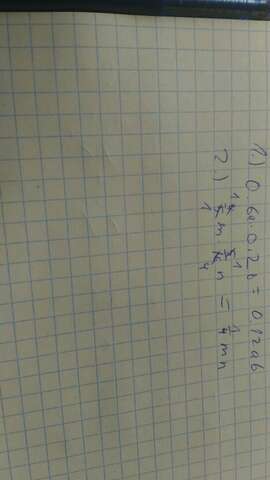 1.) 0.6a·0.2b = 0.12ab
2) m n = 1/4 mn